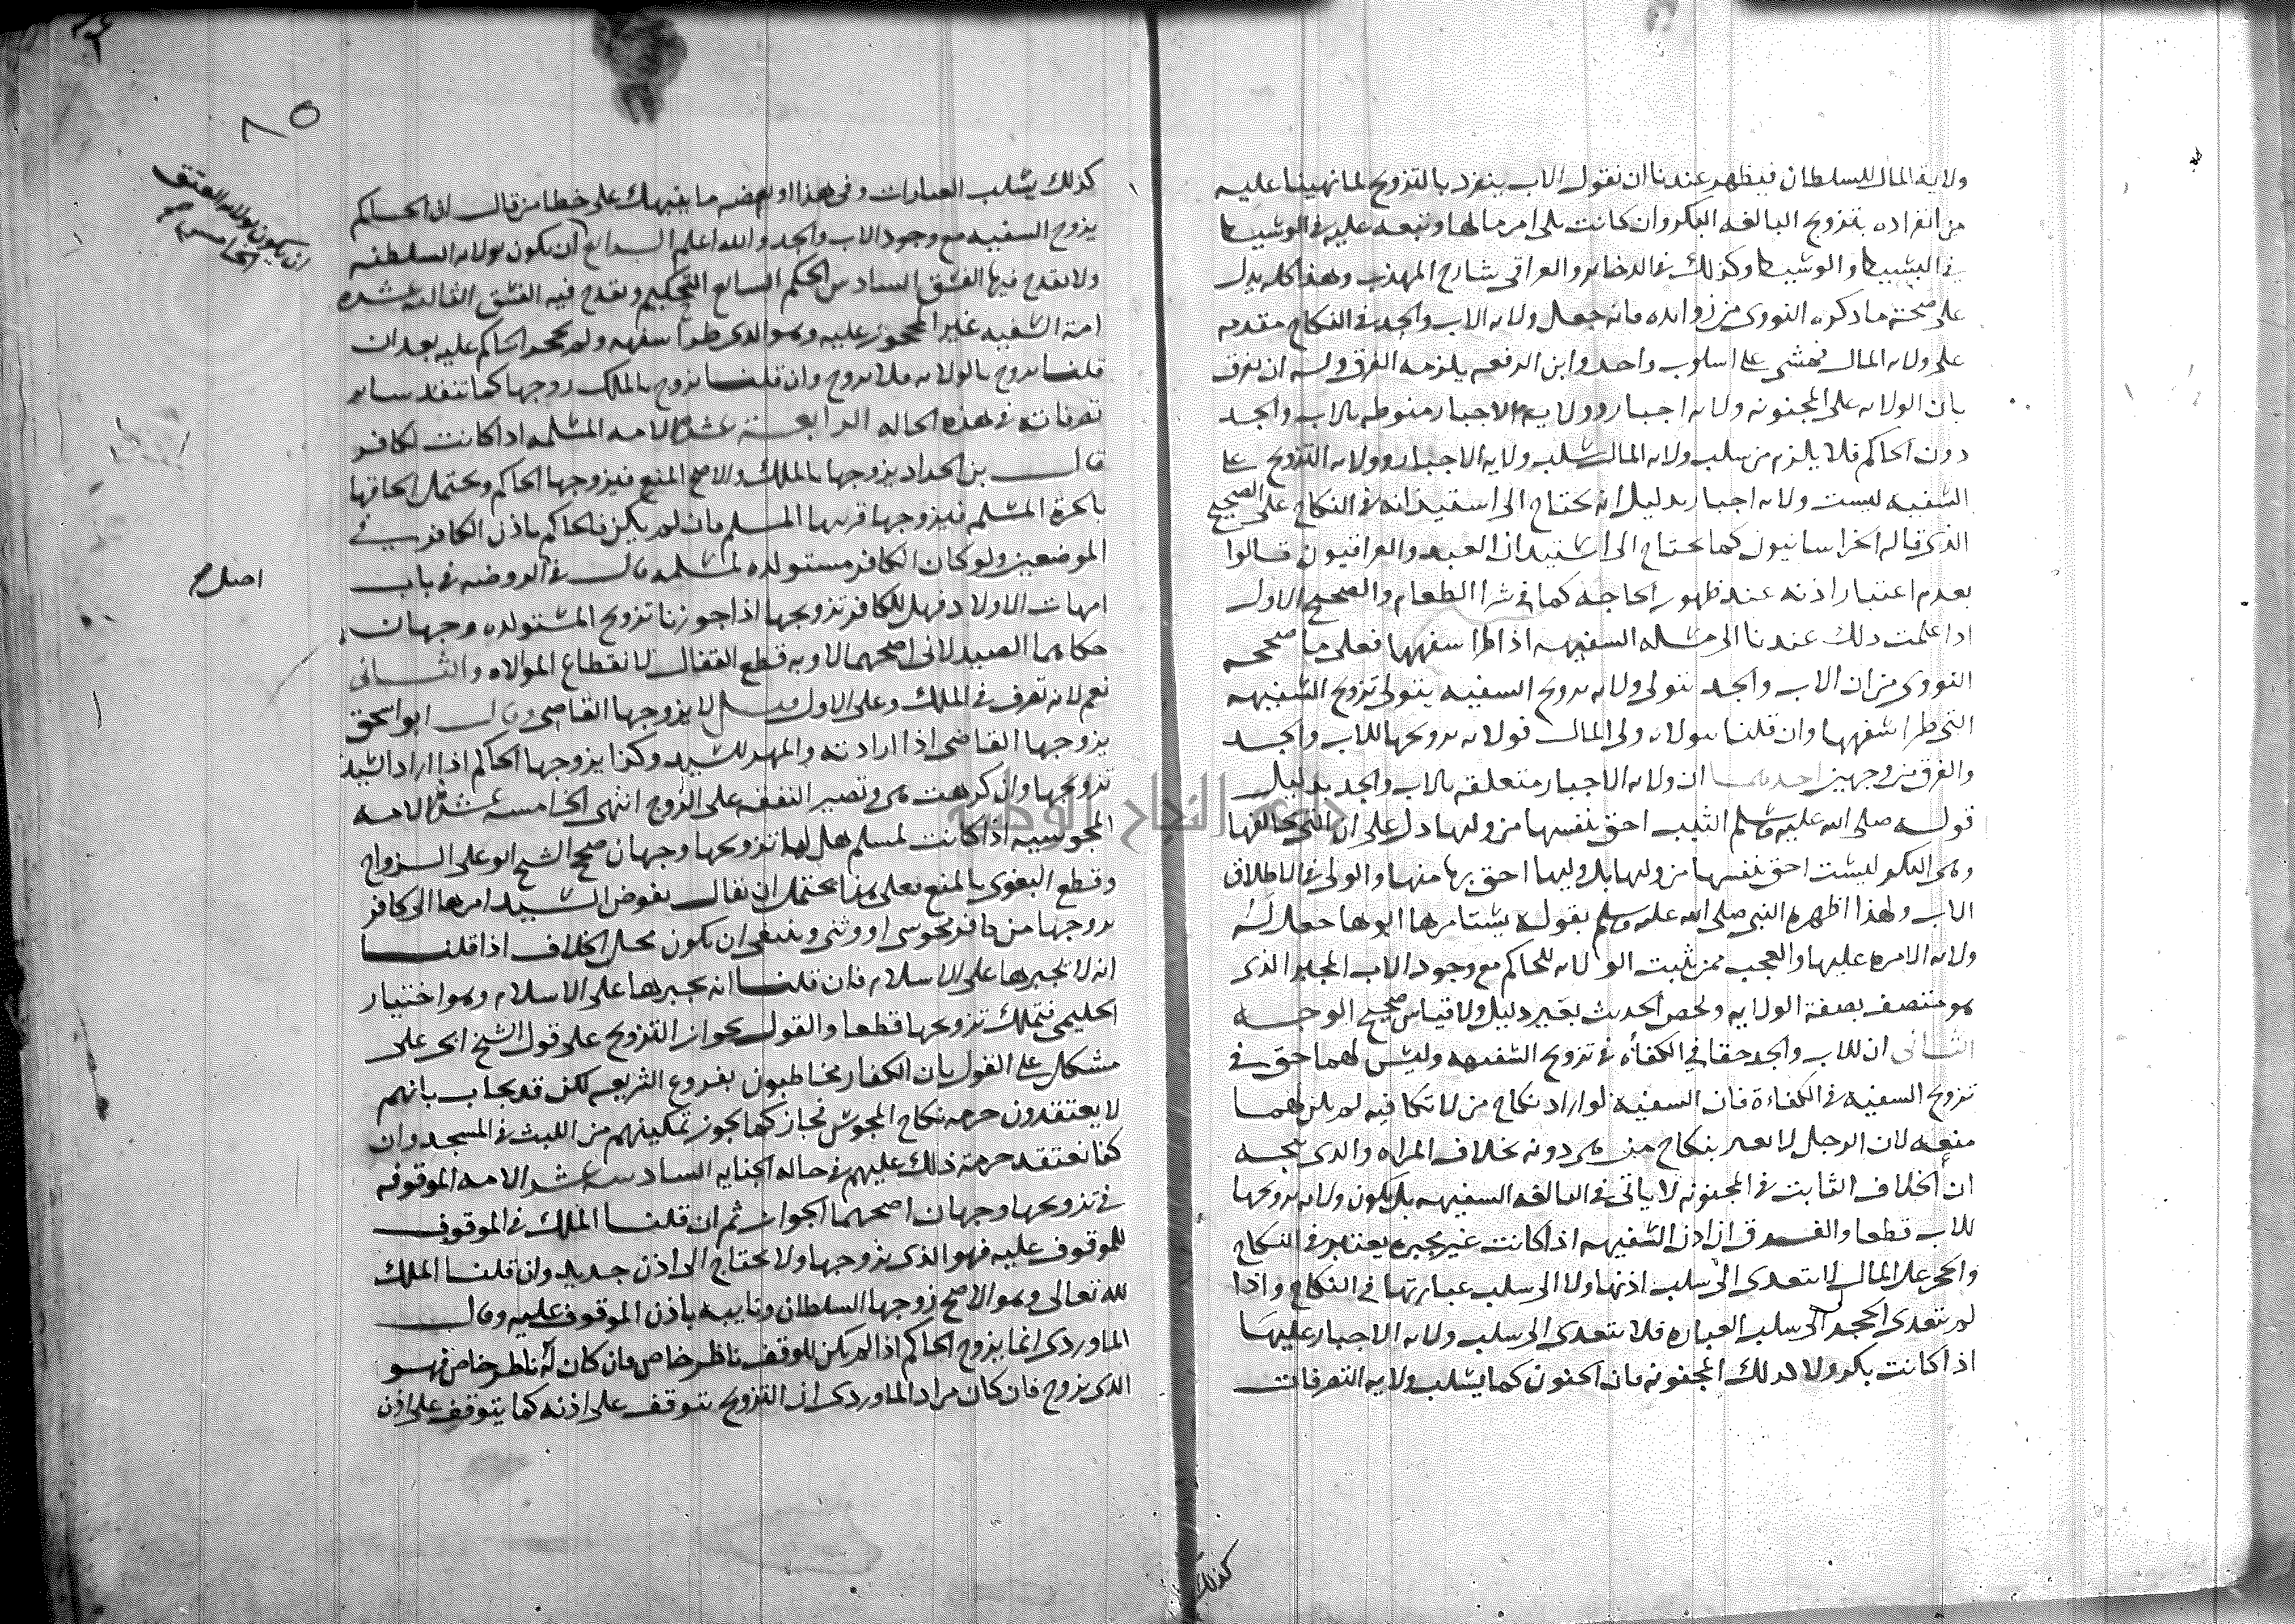 ولاية المال للسلطان فيظهر عندنا ان نقول الاب ينفرد بالتزويج لما نهينا عليه
من انفراده بتزويج البالغه البكر وان كانت يلى امر مالها ونبعه عليه في الوسيط
في البسيط والوسيط وكذلك في الدخاير والعراقي شارح المهذب وهذا كله يدل
على صحة ما ذكره النووى من زوايده فانه جعل ولايه الاب والجد في النكاح مقدمه
على ولايه المال فمشى على اسلوب واحد وابن الرفعه يلزمه الفرق وله ان يفرق
بان الولايه على المجنونه ولايه اجبار وولاية الاجبار منوطه بالاب والجد
دون الحاكم فلا يلزم من سلب ولايه المال سلب ولاية الاجبار وولايه التزويج على
السفيه ليست ولايه اجبار بدليل انه يحتاج الى استيذانه في النكاح على الصحيح
الذى قاله الخراسانيون كما يحتاج الى استيذان العبد والعراقيون قالوا
بعدم اعتبار اذنه عند ظهور الحاجه كما في شرا الطعام والصحيح الاول
اذا علمت ذلك عندنا الى مسله السفيهه اذا طرا سفهها فعلى ما صححه
النووى من ان الاب والجد يتولى ولايه تزويج السفيه يتولى تزويج السفيهه
التي طرا سفهها وان قلنا بولايه ولى المال فولايه تزويجها للاب والجد
والفرق من وجهين احدهما ان ولايه الاجبار متعلقه بالاب والجد بدليل
قوله صلى الله عليه وسلم الثيب احق بنفسها من وليها دل على ان التي تخالفها
وهى البكر ليست احق بنفسها من وليها بل وليها احق بها منها والولى في الاطلاق
الاب ولهذا اظهره النبي صلى الله عليه وسلم بقوله يستامرها ابوها جعل له
ولايه الامره عليها والعجب ممن يثبت الولايه للحاكم مع وجود الاب المجبر الذى
هو متصف بصفة الولايه ولخص الحديث بغير دليل ولا قياس صحيح الوجه
الثانى ان للاب والجد حقا في الكفأه في تزويج السفيهه وليس لهما حق في
تزويج السفيه في الكفاءة فان السفيه لو اراد نكاح من لا تكافيه لم يكن لهما
منعه لان الرجل لا يعير بنكاح من هى دونه بخلاف المراه والذى يتجه
ان الخلاف الثابت في المجنونه لا ياتى في البالغه السفيهه بل يكون ولايه تزويجها
للاب قطعا والفرق ان اذن السفيهه اذا كانت غير مجبره يعتبر في النكاح
والحجر على المال لا يتعدى الى سلب اذنها ولا الى سلب عبارتها في النكاح واذا
لم يتعدى الحجر الى سلب العباره فلا يتعدى الى سلب ولايه الاجبار عليها
اذا كانت بكر ولا كذلك المجنونه فان الجنون كما يسلب ولايه التصرفات
كذلك
٨٥
كذلك يسلب العبارات وفى هذا او بعضه ما ينبهك على خطا من قال ان الحاكم
يزوج السفيه مع وجود الاب والجد والله اعلم الرابع ان يكون بولايه السلطنه
ولا يقدح فيها الفسق السادس الحكم السابع التحكيم ويقدح فيه الفسق الثالثه عشره
امة السفيه غير المحجور عليه وهو الذى طرا سفهه ولم يحجر الحاكم عليه بعد ان
قلنا يزوج بالولايه فلا يزوج وان قلنا يزوج بالملك زوجها كما تنفذ ساير
تصرفاته في هذه الحاله الرابعة عشر الامه المسلمه اذا كانت لكافر
قال بن الحداد يزوجها بالملك والاصح المنع فيزوجها الحاكم ويحتمل الحاقها
بالحرة المسلمه فيزوجها قريبها المسلم فان لم يكن فالحاكم باذن الكافر في
الموضعين ولو كان الكافر مستولده مسلمه قال في الروضه في باب
امهات الاولاد فهل للكافر تزويجها اذا جوزنا تزويج المستولده وجهان
حكاهما الصيدلانى اصحهما لا وبه قطع القفال لانقطاع الموالاه والثانى
نعم لانه تصرف في الملك وعلى الاول قيل لا يزوجها القاضى وقال ابو اسحق
يزوجها القاضى اذا ارادته والمهر للسيد وكذا يزوجها الحاكم اذا اراد السيد
تزويجها وان كرهت هى وتصير النفقه على الزوج انتهى الخامسه عشر الامه
المجوسيه اذا كانت لمسلم هل له تزويجها وجهان صحح الشيخ ابو على الزواج
وقطع البغوى بالمنع فعلى هذا يحتمل ان يقال يفوض السيد امرها الى كافر
يزوجها من كافر مجوسى او وثنى وينبغى ان يكون محل الخلاف اذا قلنا
انه لا يجبرها على الاسلام فان قلنا انه يجبرها على الاسلام وهو اختيار
الحليمى فتملك تزويجها قطعا والقول بجواز التزويج على قول الشيخ ابى على
مشكل على القول بان الكفار مخاطبون بفروع الشريعه لكن قد يجاب بانهم
لا يعتقدون حرمه نكاح المجوس فجاز كما يجوز تمكينهم من اللبث في المسجد وان
كنا نعتقد حرمة ذلك عليهم في حاله الجنايه السادسه عشر الامه الموقوفه
في تزويجها وجهان اصحهما الجواز ثم ان قلنا الملك في الموقوف
للموقوف عليه فهو الذى يزوجها ولا يحتاج الى اذن جديد وان قلنا الملك
لله تعالى وهو الاصح زوجها السلطان ونايبه باذن الموقوف عليه وقال
الماوردى انما يزوج الحاكم اذا لم يكن للوقف ناظر خاص فان كان له ناظر خاص فهو
الذى يزوج فان كان مراد الماوردى ان التزويج يتوقف على اذنه كما يتوقف على اذن
ان يكون بولايه العتق
الخامس صح
اصل صح